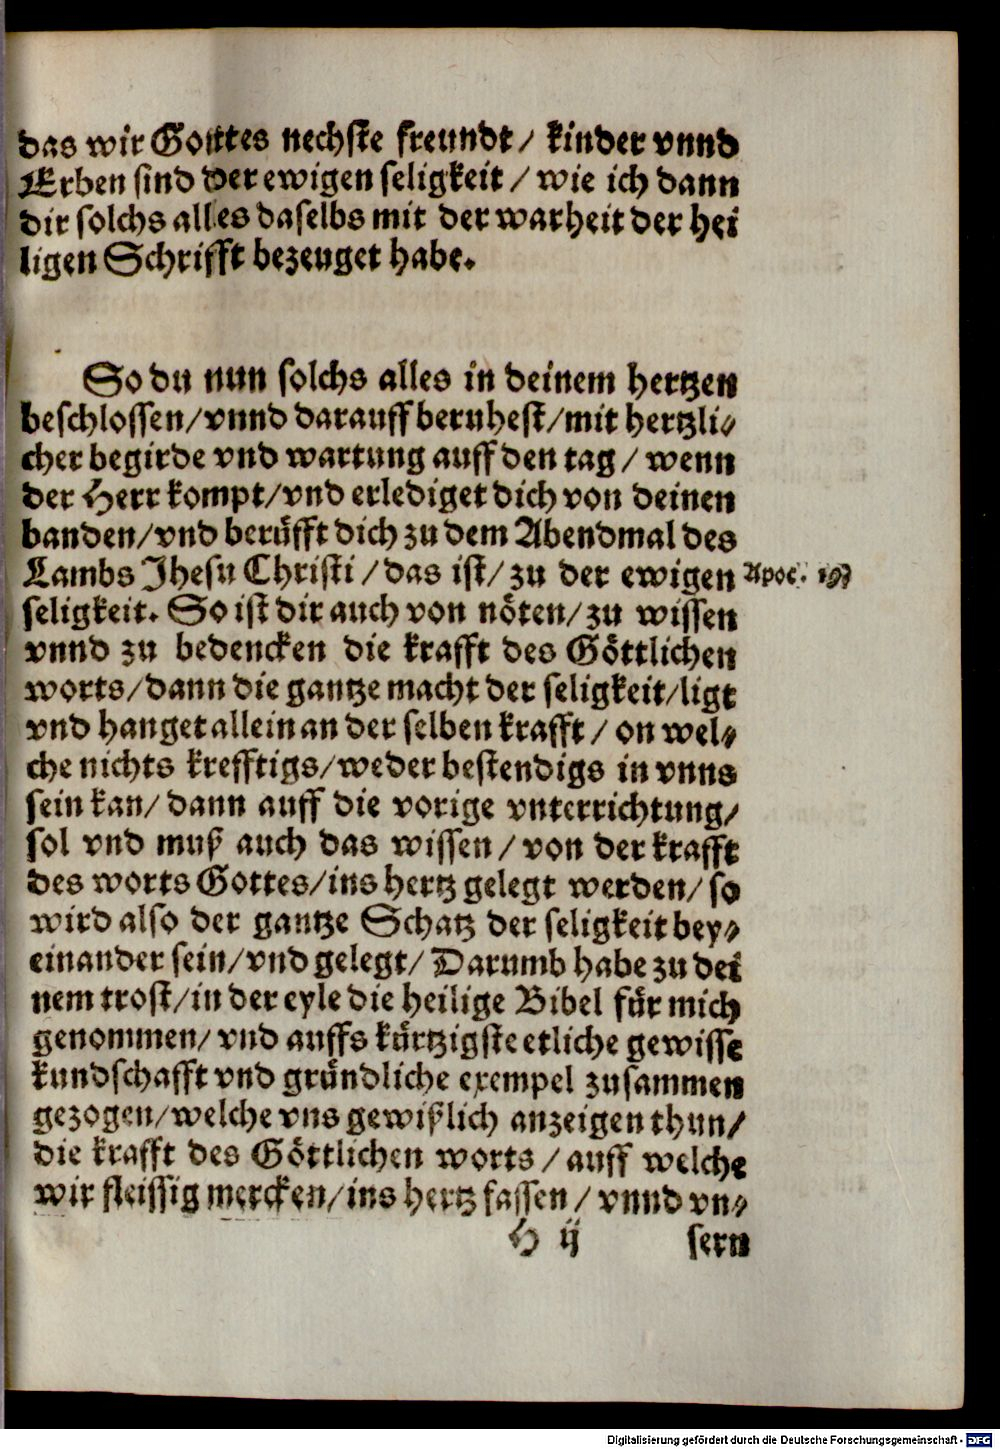 das wir Gottes nechste freundt/ kinder vnnd
Erben sind der ewigen seligkeit/ wie ich dann
dir solchs alles daselbs mit der warheit der hei
ligen Schrifft bezeuget habe.
So du nun solchs alles in deinem hertzen
beschlossen/ vnnd darauff beruhest/ mit hertzli-
cher begirde vnd wartung auff den tag/ wenn
der Herr kompt/ vnd erlediget dich von deinen
banden/ vnd berüfft dich zu dem Abendmal des
Lambs Jhesu Christi/ das ist/ zu der ewigen Apoc. 19
seligkeit. So ist dir auch von nöten/ zu wissen
vnnd zu bedencken die krafft des Göttlichen
worts/ dann die gantze macht der seligkeit/ ligt
vnd hanget allein an der selben krafft/ on wel-
che nichts krefftigs/ weder bestendigs in vnns
sein kan/ dann auff die vorige vnterrichtung/
sol vnd muß auch das wissen/ von der krafft
des worts Gottes/ ins hertz gelegt werden/ so
wird also der gantze Schatz der seligkeit bey-
einander sein/ vnd gelegt/ Darumb habe zu dei
nem trost/ in der eyle die heilige Bibel für mich
genommen/ vnd auffs kürtzigste etliche gewisse
kundschafft vnd gründliche exempel zusammen
gezogen/ welche vns gewißlich anzeigen thun/
die krafft des Göttlichen worts/ auff welche
wir fleissig mercken/ ins hertz fassen/ vnnd vn-
H ij sern
Digitalisierung gefördert durch die Deutsche Forschungsgemeinschaft - DFG